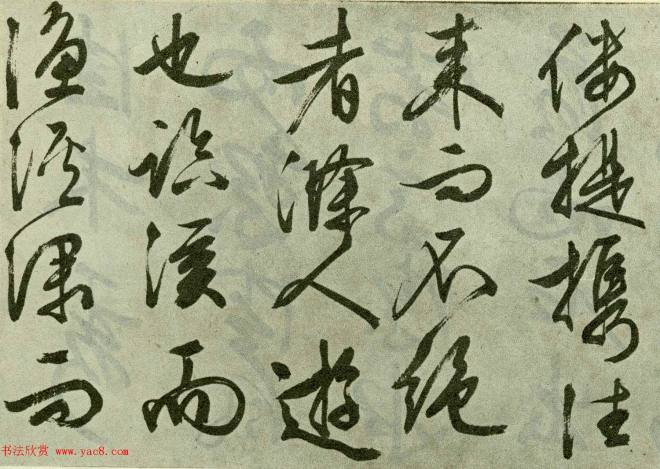 偻提携往
来而不绝
者滁人遊
也临溪而
渔溪深而
书法欣赏 www.yac8.com